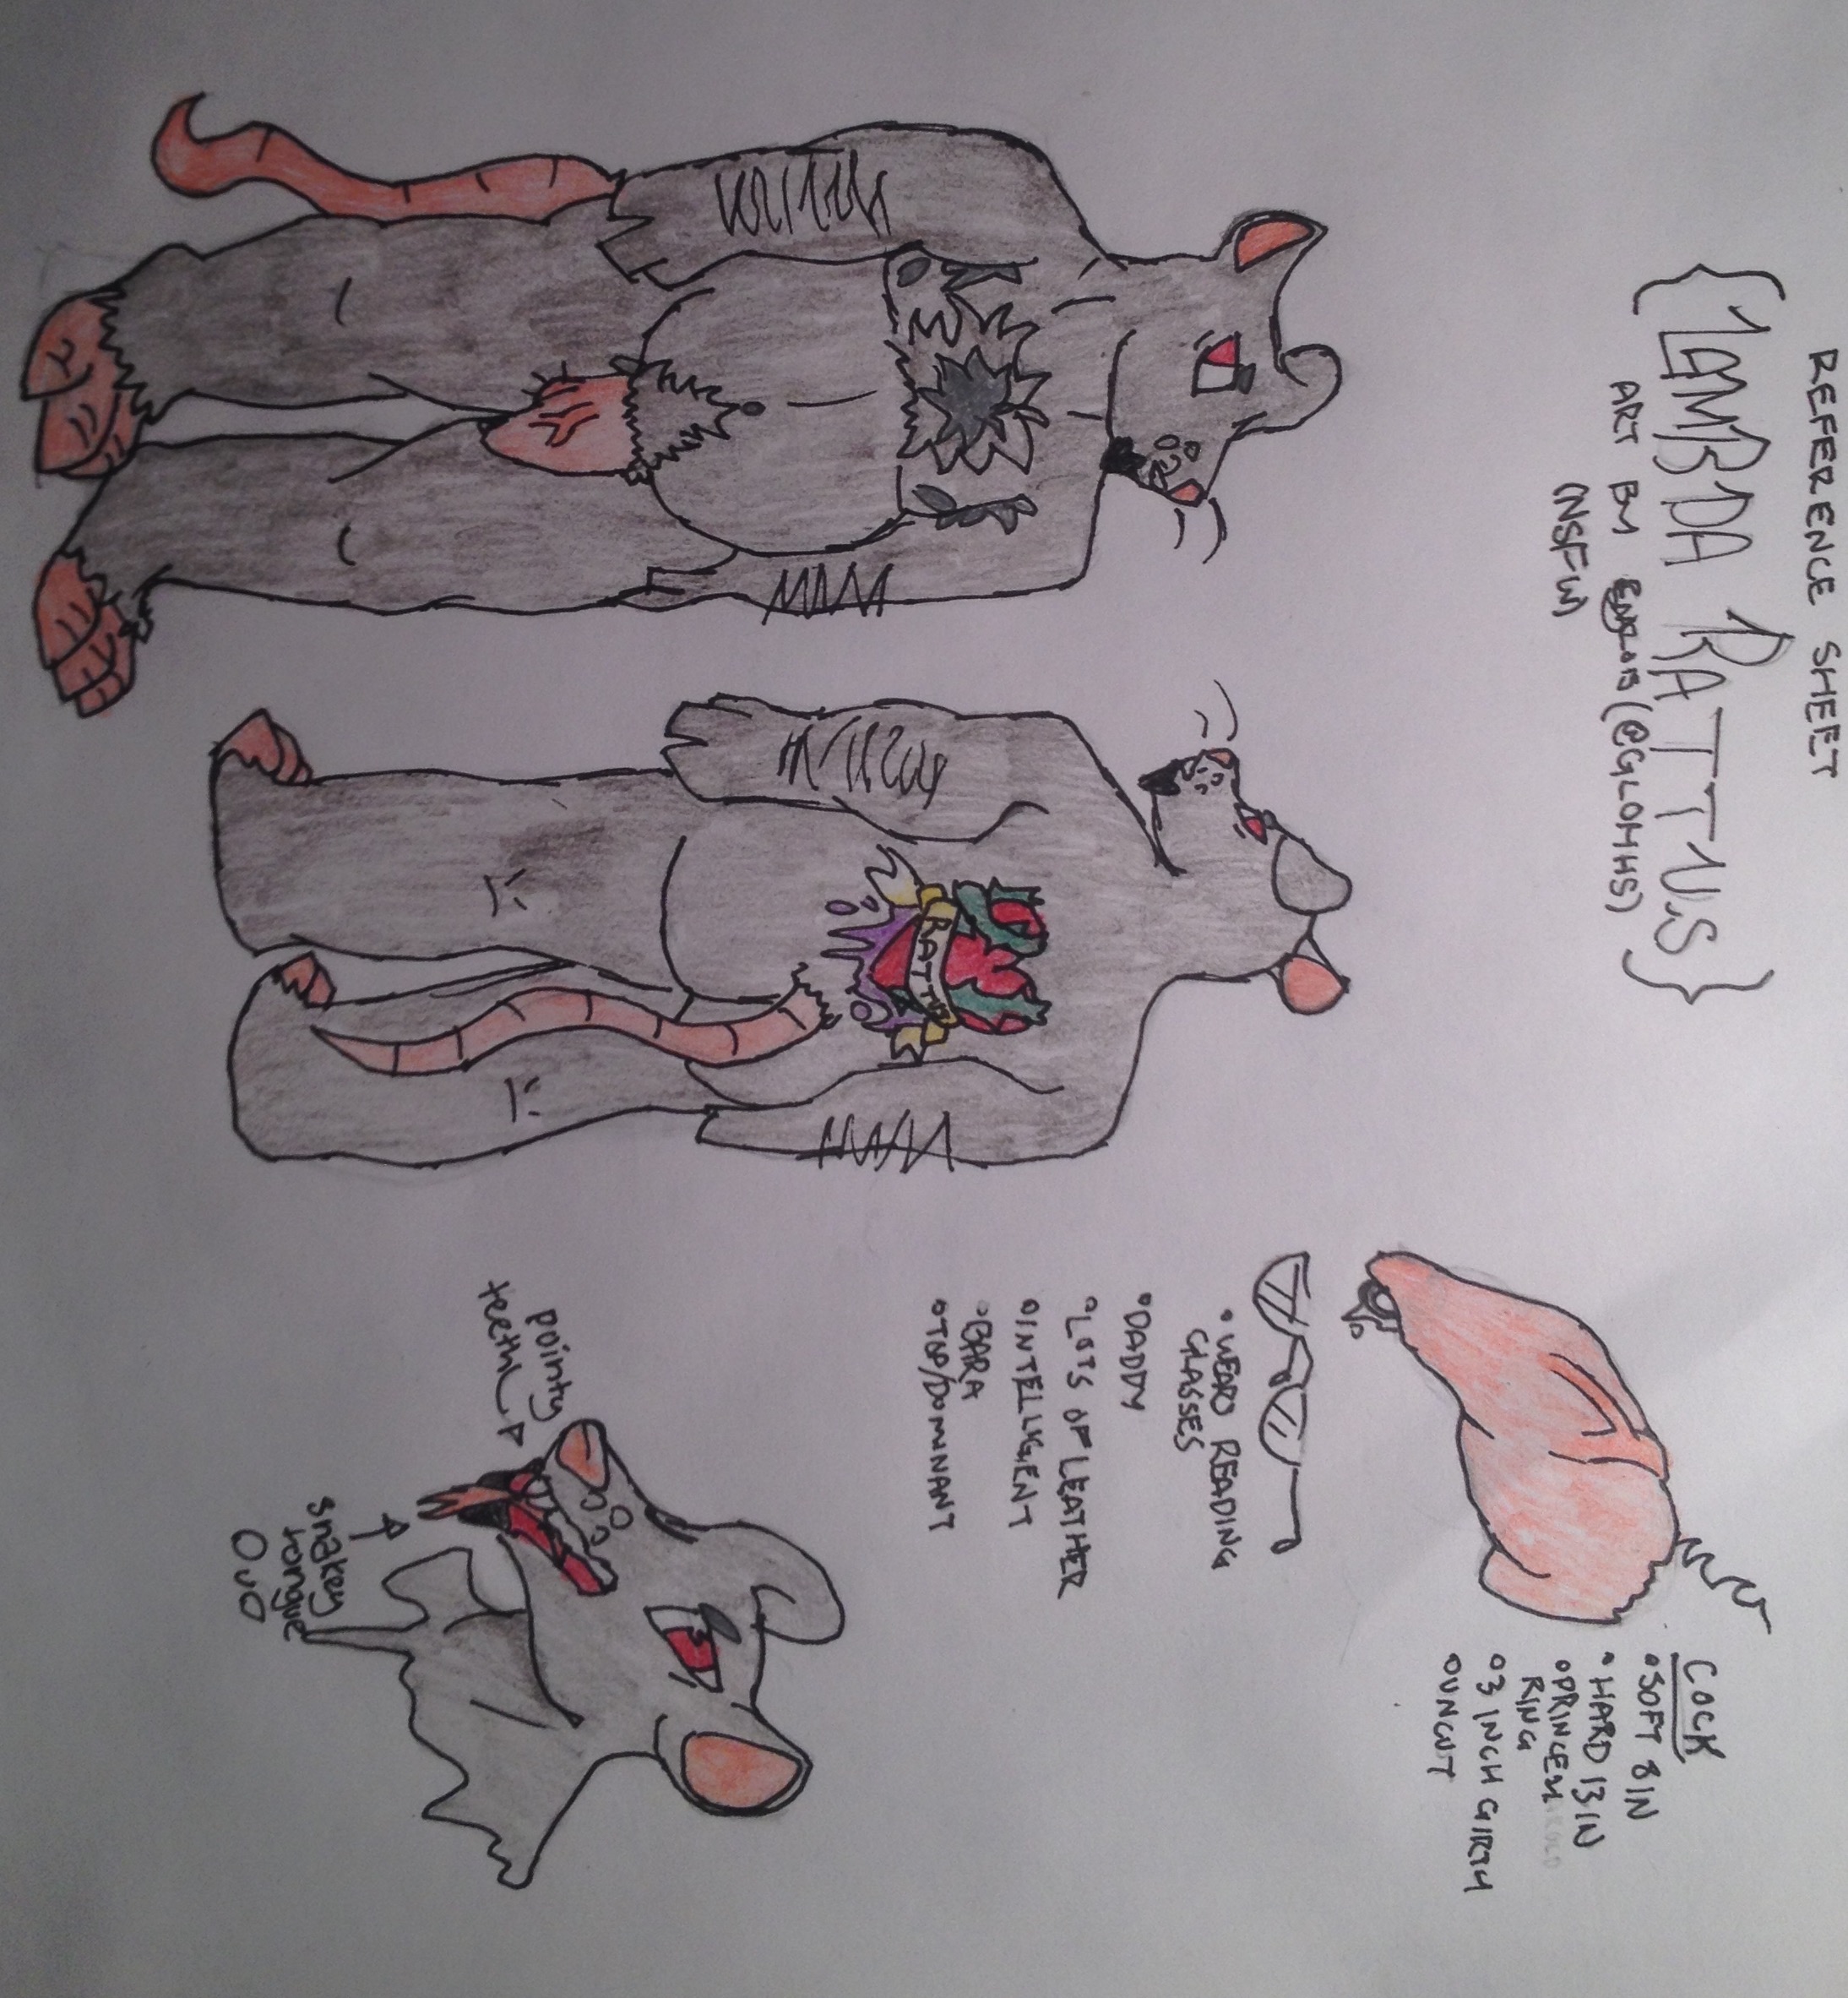 REFERENCE SHEET
{LAMBDA RATTUS}
ART BY (@GLOMHS)
(NSFW)
COCK
•SOFT 8 IN
•HARD 13 IN
•PRINCE
RING
•3 INCH GIRTH
•UNCUT
•WEARS READING
GLASSES
•DADDY
•LOTS OF LEATHER
•INTELLIGENT
•BARA
•TOP/DOMINANT
RATTUS
pointy
teeth
snakey
tongue
OuO